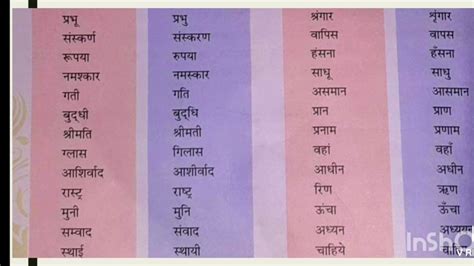 प्रभू प्रभु श्रंगार शृंगार
संस्कर्ण संस्करण वापिस वापस
रूपया रुपया हंसना हँसना
नमश्कार नमस्कार साधू साधु
गती गति असमान आसमान
बुद्धी बुद्धि प्रान प्राण
श्रीमति श्रीमती प्रनाम प्रणाम
ग्लास गिलास वहां वहाँ
आशिर्वाद आशीर्वाद आधीन अधीन
रास्ट्र राष्ट्र रिण ऋण
मुनी मुनि ऊंचा ऊँचा
सम्वाद संवाद अध्यन अध्ययन
स्थाई स्थायी चाहिये
InSh